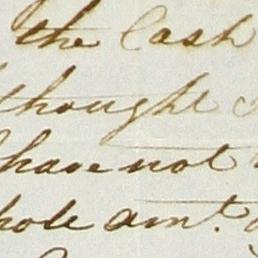 the Cash
thought
have not
hole amt.